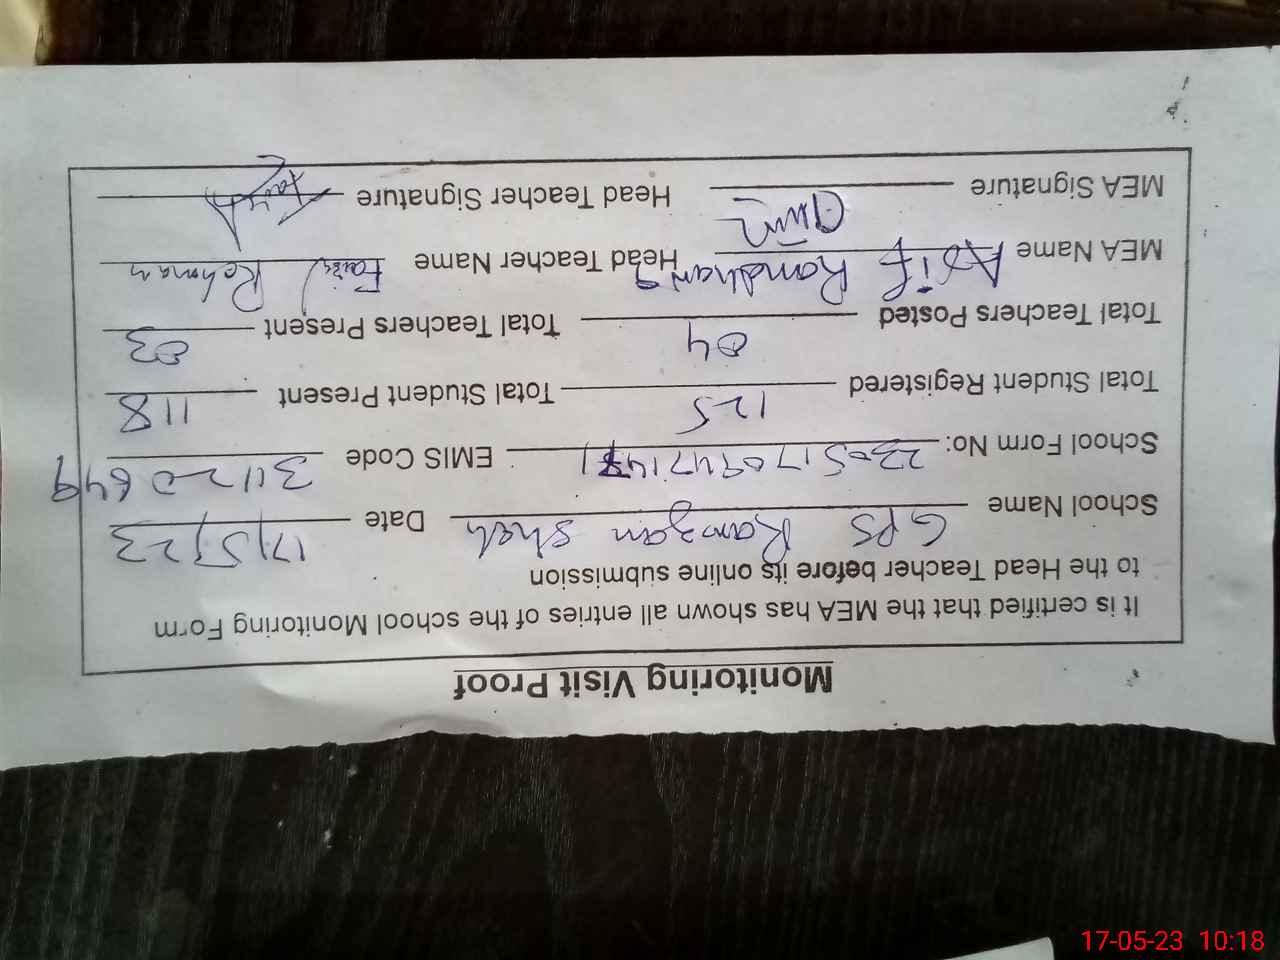 Monitoring Visit Proof
It is certified that the MEA has shown all entries of the school Monitoring Form
to the Head Teacher before its online submission
School Name GPS Ramzan Shah Date 17/5/23
School Form No: EMIS Code 31120649
Total Student Registered 125 Total Student Present 118
Total Teachers Posted 04 Total Teachers Present 03
MEA Name Asif Head Teacher Name Rehman
MEA Signature Head Teacher Signature
17-05-23 10:18